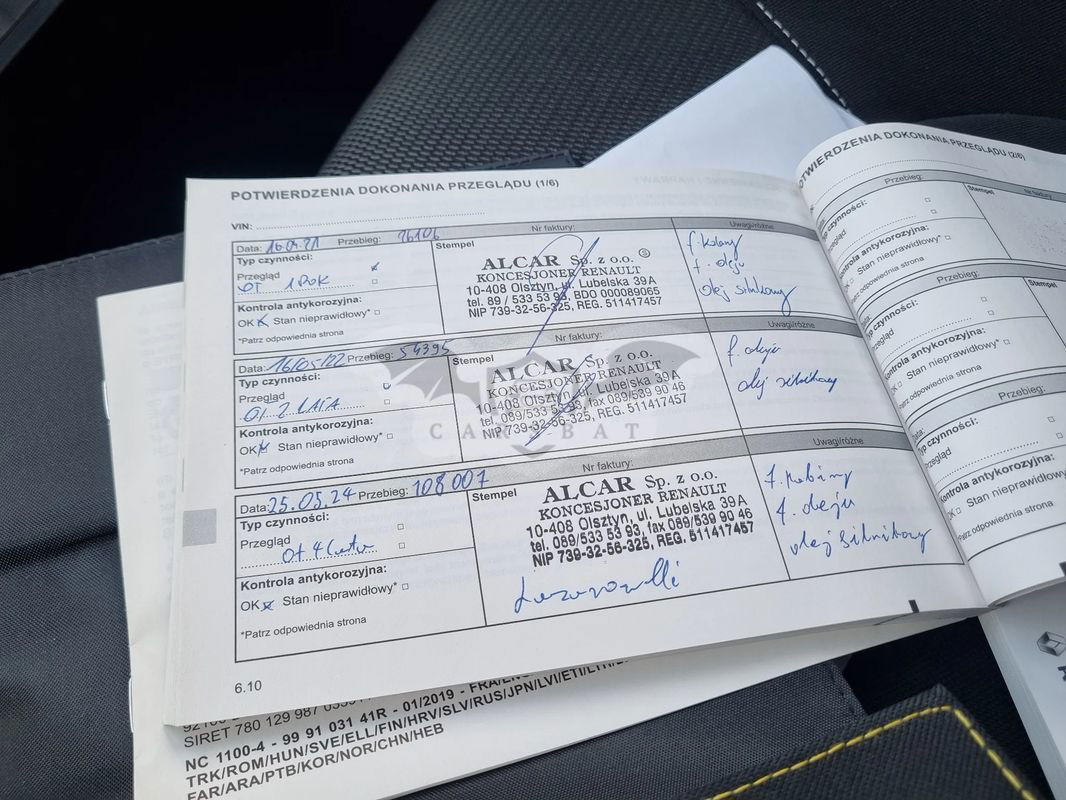 POTWIERDZENIA DOKONANIA PRZEGLĄDU (1/6)
VIN:
Data: 16.04.21 Przebieg: 26106 Nr faktury: Uwagi/różne
Typ czynności:
Stempel
Przegląd
OT 1 ROK
Kontrola antykorozyjna:
OK Stan nieprawidłowy*
*Patrz odpowiednia strona
ALCAR Sp. z o.o.
KONCESJONER RENAULT
10-408 Olsztyn, ul. Lubelska 39A
tel. 89 / 533 53 93, BDO 000089065
NIP 739-32-56-325, REG. 511417457
f. kabiny
f. oleju
olej silnikowy
Data: 16/05/22 Przebieg: 54395 Nr faktury: Uwagi/różne
Typ czynności:
Stempel
Przegląd
OT 2 LATA
Kontrola antykorozyjna:
OK Stan nieprawidłowy*
*Patrz odpowiednia strona
ALCAR Sp. z o.o.
KONCESJONER RENAULT
10-408 Olsztyn, ul. Lubelska 39A
tel. 089/533 53 93, fax 089/539 90 46
NIP 739-32-56-325, REG. 511417457
f. oleju
olej silnikowy
CAR BAT
Data: 25.05.24 Przebieg: 108007 Nr faktury: Uwagi/różne
Typ czynności:
Stempel
Przegląd
Ot 4
Kontrola antykorozyjna:
OK Stan nieprawidłowy*
*Patrz odpowiednia strona
ALCAR Sp. z o.o.
KONCESJONER RENAULT
10-408 Olsztyn, ul. Lubelska 39A
tel. 089/533 53 93, fax 089/539 90 46
NIP 739-32-56-325, REG. 511417457
f. kabiny
f. oleju
olej silnikowy
6.10
SIRET 780 129 987
NC 1100-4 - 99 91 031 41R - 01/2019 - FRA/ENG
TRK/ROM/HUN/SVE/ELL/FIN/HRV/SLV/RUS/JPN/LVI/ETI/LTH
FAR/ARA/PTB/KOR/NOR/CHN/HEB
POTWIERDZENIA DOKONANIA PRZEGLĄDU (2/6)
Data: Przebieg: Nr faktury
Typ czynności:
Stempel
Przegląd
Kontrola antykorozyjna:
OK Stan nieprawidłowy*
*Patrz odpowiednia strona
Data: Przebieg:
Typ czynności:
Stempel
Przegląd
Kontrola antykorozyjna:
OK Stan nieprawidłowy*
*Patrz odpowiednia strona
Data: Przebieg:
Typ czynności:
Przegląd
Kontrola antykorozyjna:
OK Stan nieprawidłowy*
*Patrz odpowiednia strona